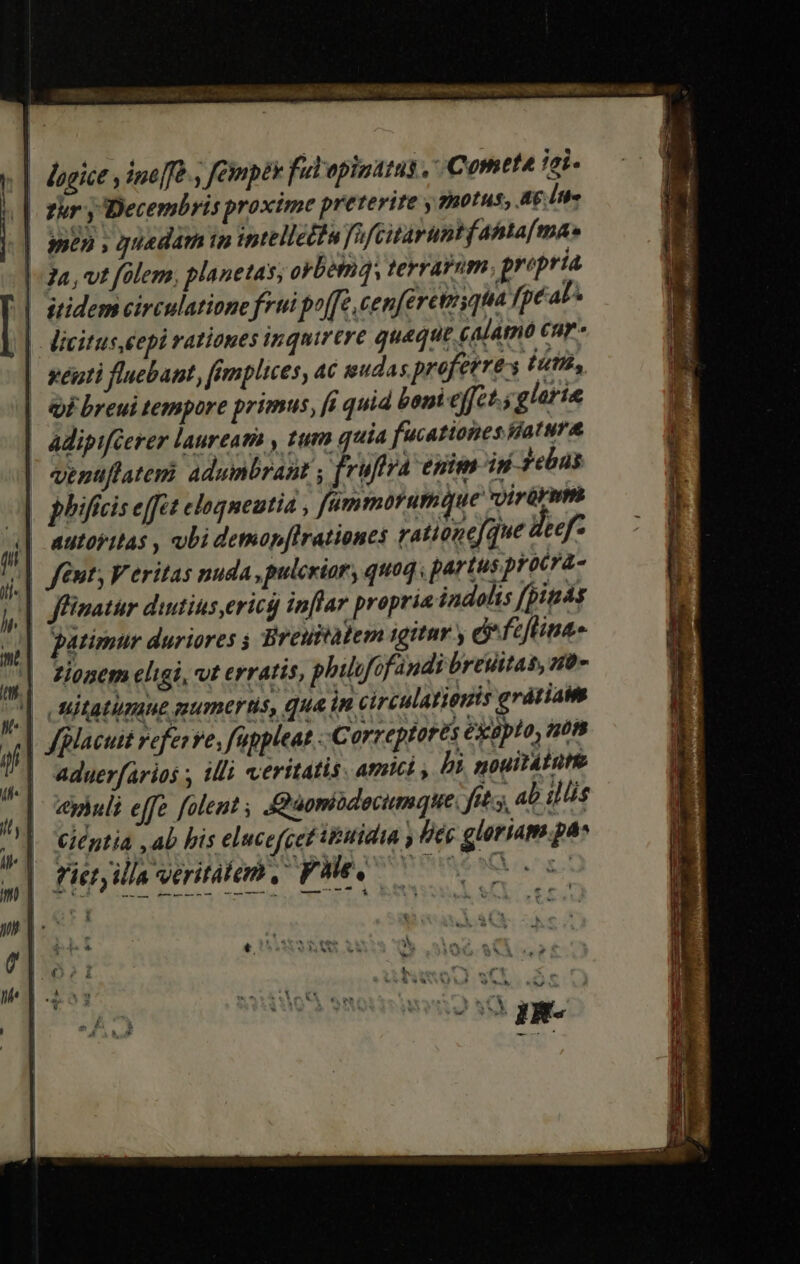 logice, ineſſe, ſemper fui opinatus. Cometæ igi-
tur, Decembris proxime preterite, motus, ac lu-
men, quædam in intellectu ſuſcitarunt fantaſma-
ta, vt ſolem, planetas, orbemq; terrarum, propria
itidem circulatione frui poſſe, cenſeremq; quæ ſpeal-
licitus, cepi rationes inquirere quæque calamo cur-
renti fluebant, ſimplices, ac nudas proferre, tum,
vt breui tempore primus, ſi quid boni eſſet, gloriæ
adipiſcerer lauream, tum quia fucationes naturæ
venuſtatem adumbrant; fruſtra enim in rebus
phiſicis eſſet eloquentia, ſummorumque virorum
autoritas, vbi demonſtrationes rationeſque deeſ-
ſent; Veritas nuda, pulcrior, quoq; partus procra-
ſtinatur diutius, ericij inſtar propriæ indolis ſpinas
patimur duriores; Breuitatem igitur, & feſtina-
tionem eligi, vt erratis, philoſofandi breuitas, no-
uitatumque numerus, quæ in circulationis gratiam
ſplacuit referre, ſuppleat. Correptores exopto, non
aduerſarios, illi veritatis amici, hi nouitatum
æmuli eſſe ſolent; Quomodocumque ſit, ab illis
cientia, ab his eluceſcet inuidia, hec gloriam pa-
riet, illa veritatem. Vale.
IN-